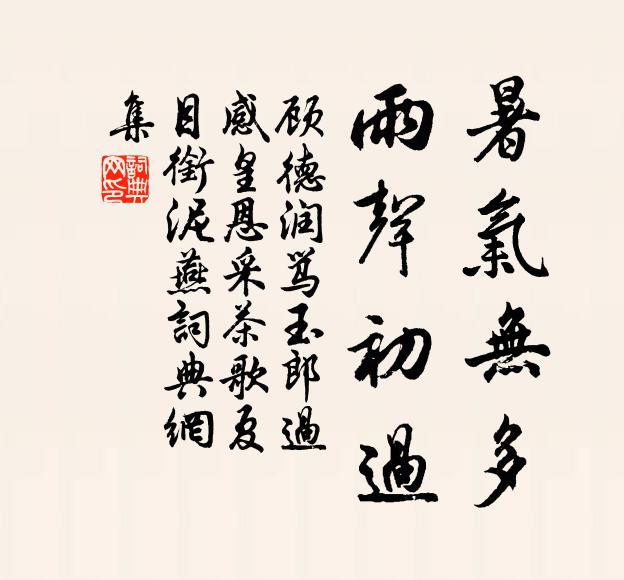 暑氣無多
雨聲初過
顾德润骂玉郎過
感皇恩采茶歌夏
目銜泥燕詞典網
集
詞典
网印